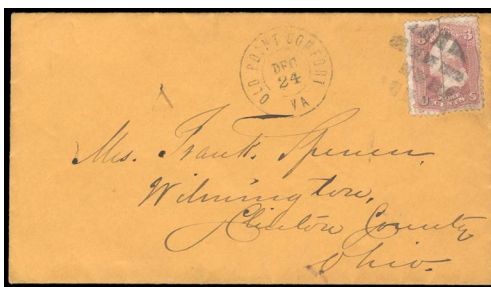 OLD POINT COMFORT
DEC
24
VA
3 3
Mrs. Frank. Spencer,
Wilmington,
Clinton County
Ohio.